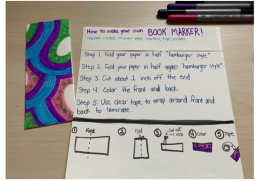 How to make your own BOOK MARKER!
Step 1: Fold your paper in half "hamburger style"
Step 2: Fold your paper in half again "hamburger style"
Step 3: Cut about 1 inch off the end.
Step 4: Color the front and back.
Step 5: Use clear tape, to wrap around front and
back to laminate.
① Fold ② Fold ③ Cut off ④ Color ⑤ Tape